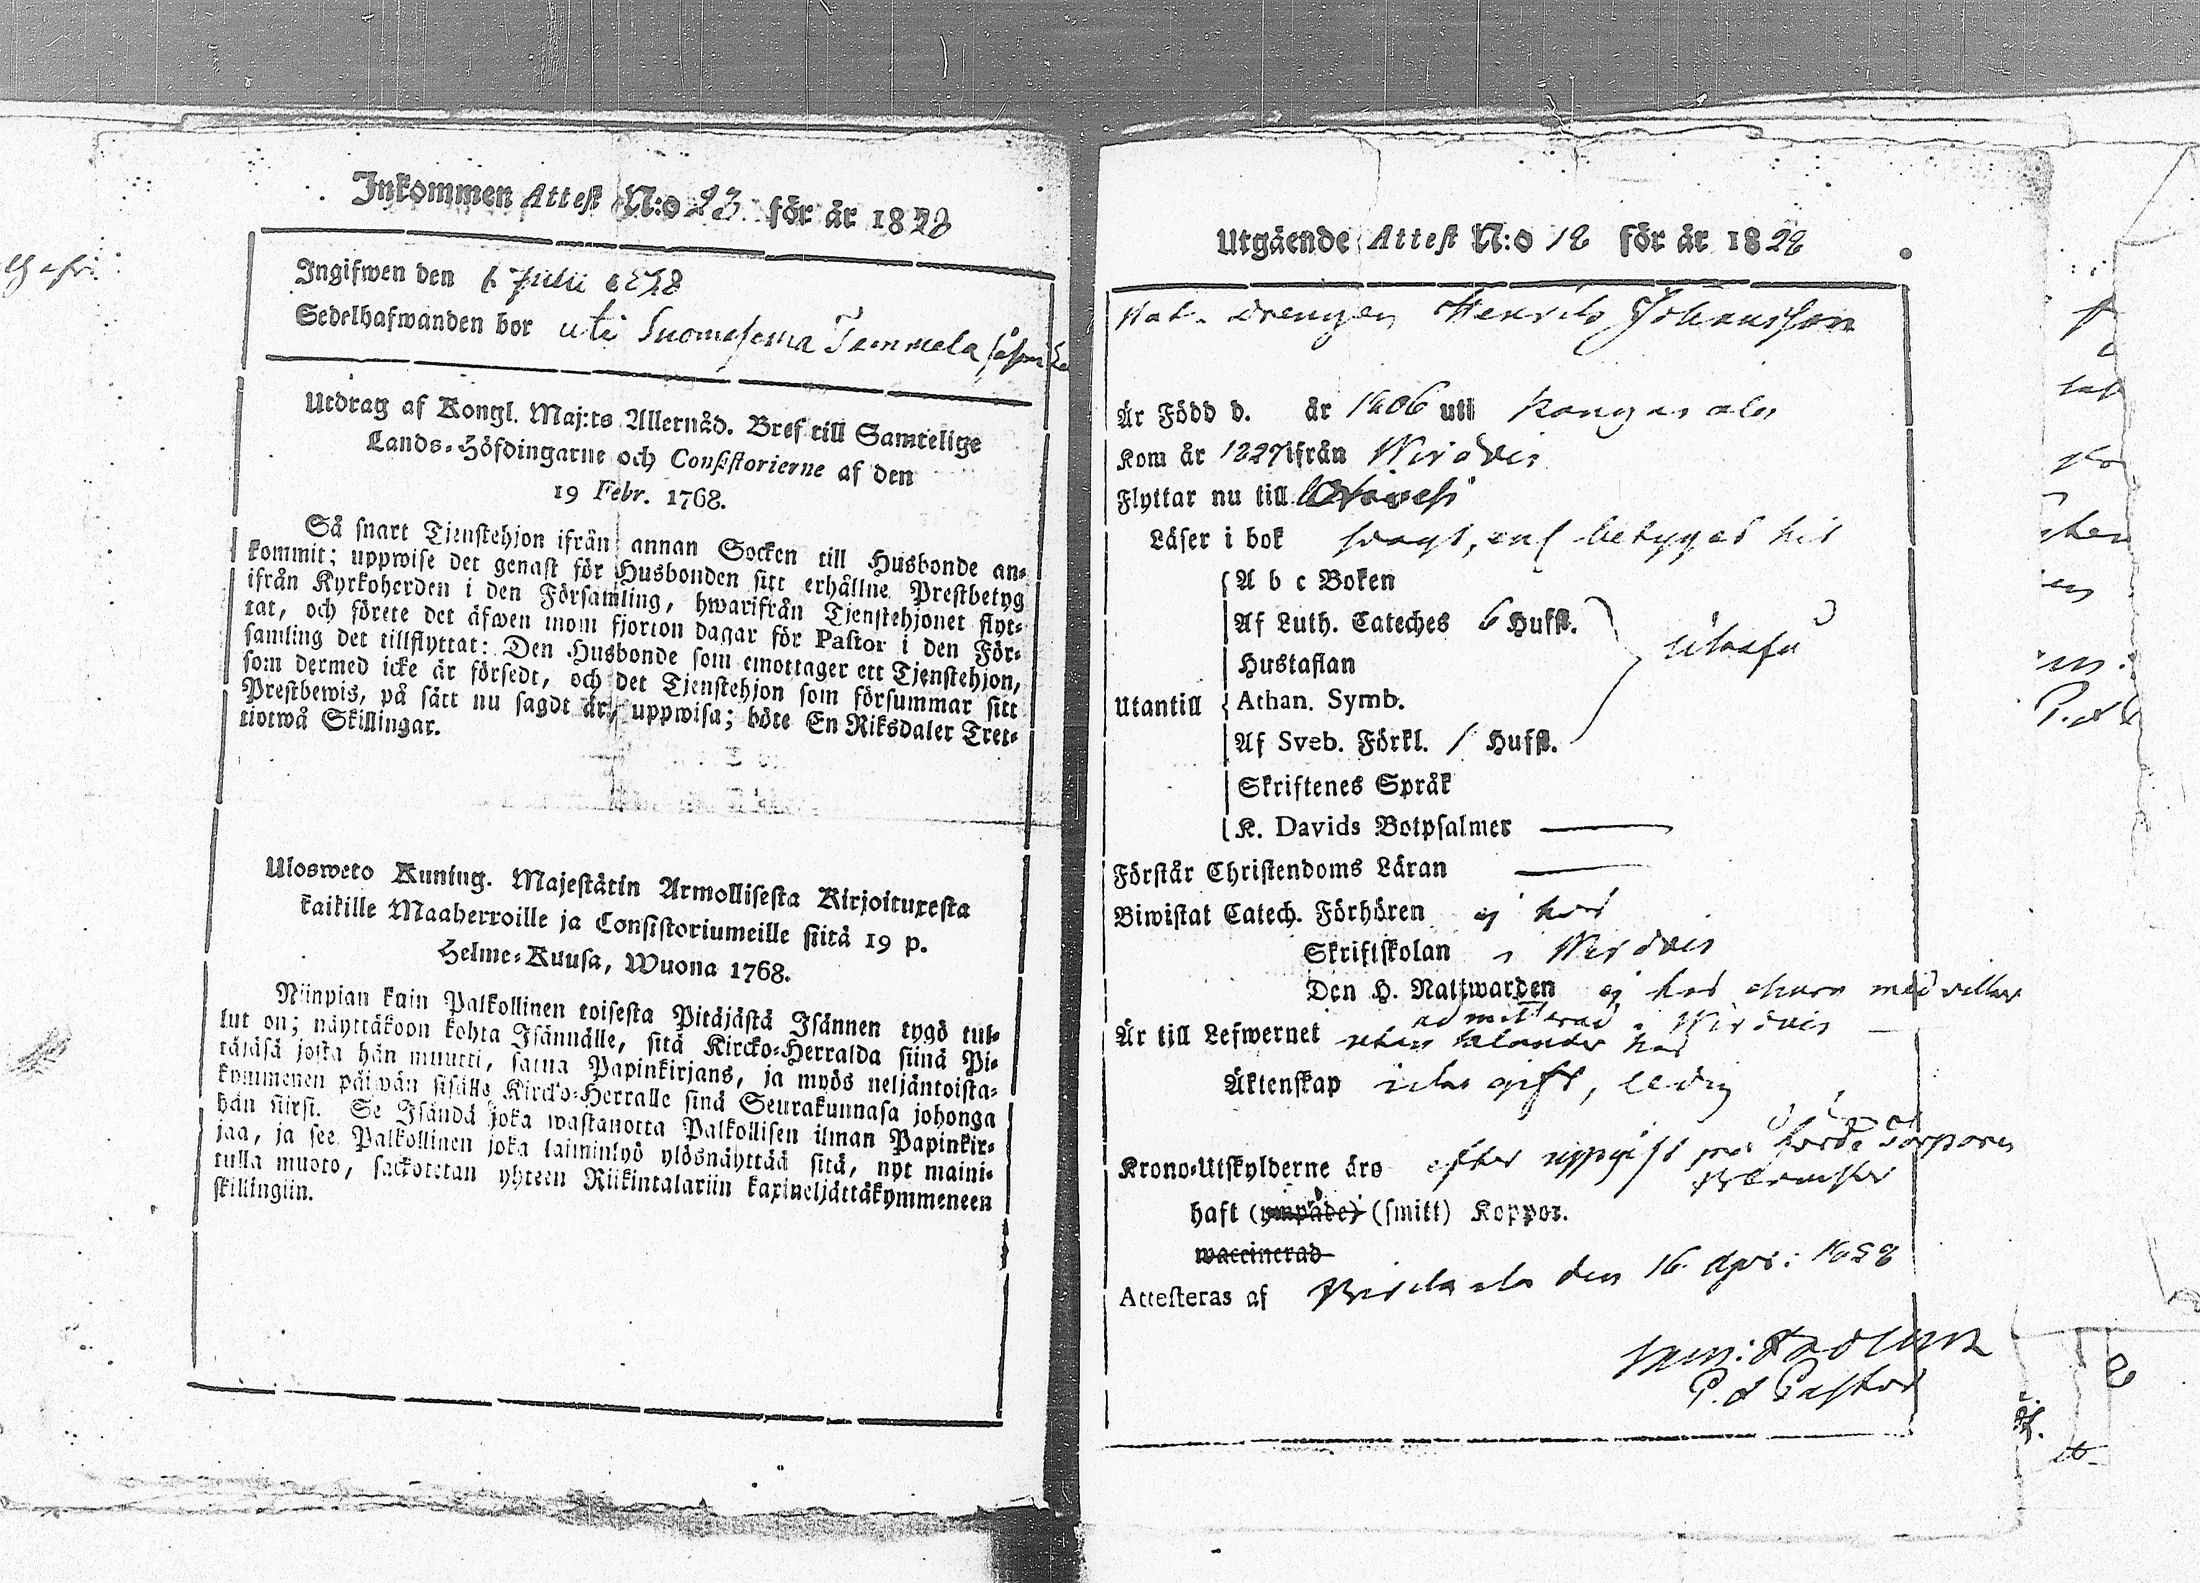 Inkommen Attest N:o 23 för år 1828
Ingifwen den 6 Julii 1828
Sedelhafwanden bor uti Suomesema Tammela
Utdrag af Kongl. Maj:ts Allernåd. Bref till Samtelige
Lands-Höfdingarne och Consistorierne af den
19 Febr. 1768.
Så snart Tjenstehjon ifrån annan Socken till Husbonde an-
kommit; uppwise det genast för Husbonden sitt erhållne Prestbetyg
ifrån Kyrkoherden i den Församling, hwarifrån Tjenstehjonet flyt-
tat, och förete det äfwen inom fjorton dagar för Pastor i den För-
samling det tillflyttat: Den Husbonde som emottager ett Tjenstehjon,
som dermed icke är försedt, och det Tjenstehjon som försummar sitt
Prestbewis, på sätt nu sagdt är, uppwisa; böte En Riksdaler Tret-
tiotwå Skillingar.
Ulosweto Kuning. Majestätin Armollisesta Kirjoituxesta
kaikille Maaherroille ja Consistoriumeille siitä 19 p.
Helme-Kuusa, Wuona 1768.
Niinpian kuin Palkollinen toisesta Pitäjästä Isännen tygö tul-
lut on; näyttäkoon kohta Isännälle, sitä Kircko-Herralda siinä Pi-
täjäsä josta hän muutti, saatua Papinkirjans, ja myös neljäntoista-
kymmenen päiwän sisälle Kircko-Herralle sinä Seurakunnasa johonga
hän siirsi. Se Isändä joka wastanotta Palkollisen ilman Papinkir-
jaa, ja see Palkollinen joka laiminlyö ylösnäyttää sitä, nyt maini-
tulla muoto, sackotetan yhteen Riikintalariin kaxineljättäkymmeneen
skillingiin.
Utgående Attest N:o 18 för år 1828
drengen Henrik Johansson
Är Född d. år 1806 uti Kangasala
Kom år 1827 ifrån Wirdois
Flyttar nu till
Läser i bok svagt, enl betyget hit
A b c Boken
Af Luth. Cateches 6 Hufst.
Hustaflan
Utantill Athan. Symb.
Af Sveb. Förkl. 1 Hufst.
Skriftenes Språk
K. Davids Botpsalmer
Förstår Christendoms Läran
Biwistat Catech. Förhören ej här
Skriftskolan i Wirdois
Den H. Nattwarden ej här
admitterad i Wirdois
Är till Lefwernet utan klander här
Äktenskap icke gift, ledig
Krono-Utskylderne äro efter uppgift
haft (ympade) (smitt) Koppor.
waccinerad
Attesteras af den 16 Apr: 1828